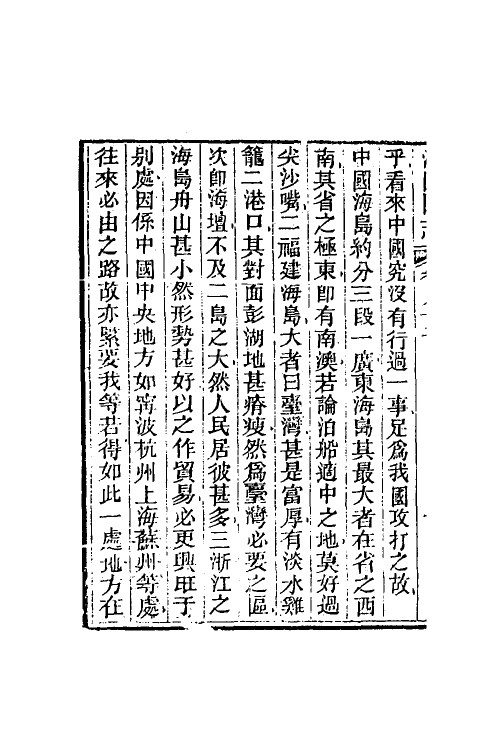 乎看來中國究沒有行過一事足爲我國攻打之故
中國海島約分三段一廣東海島其最大者在省之西
南其省之極東卽有南澳若論泊船適中之地莫好過
尖沙嘴二福建海島大者曰臺灣甚是富厚有淡水雞
籠二港口其對面彭湖地甚瘠瘦然爲臺灣必要之區
次卽海壇不及二島之大然人民居彼甚多三浙江之
海島舟山甚小然形勢甚好以之作貿易必更興旺于
別處因係中國中央地方如甯波杭州上海蘇州等處
往來必由之路故亦緊要我等若得如此一處地方在